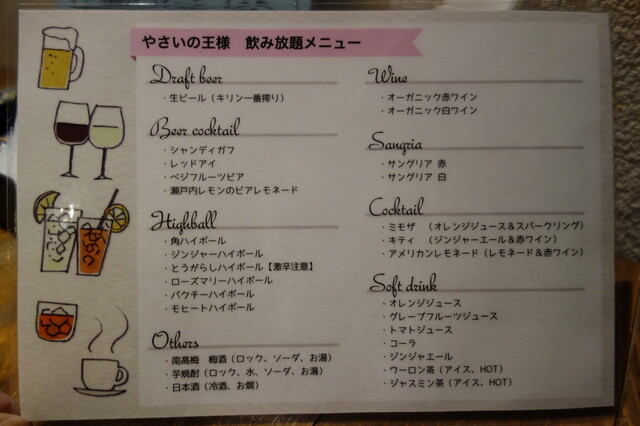 やさいの王様 飲み放題メニュー
Draft beer
・生ビール（キリン一番搾り）
Beer cocktail
・シャンディガフ
・レッドアイ
・ベジフルーツビア
・瀬戸内レモンのビアレモネード
Highball
・角ハイボール
・ジンジャーハイボール
・とうがらしハイボール【激辛注意】
・ローズマリーハイボール
・パクチーハイボール
・モヒートハイボール
Others
・南高梅 梅酒（ロック、ソーダ、お湯）
・芋焼酎（ロック、水、ソーダ、お湯）
・日本酒（冷酒、お燗）
Wine
・オーガニック赤ワイン
・オーガニック白ワイン
Sangria
・サングリア 赤
・サングリア 白
Cocktail
・ミモザ （オレンジジュース＆スパークリング）
・キティ （ジンジャーエール＆赤ワイン）
・アメリカンレモネード（レモネード＆赤ワイン）
Soft drink
・オレンジジュース
・グレープフルーツジュース
・トマトジュース
・コーラ
・ジンジャエール
・ウーロン茶（アイス、HOT）
・ジャスミン茶（アイス、HOT）